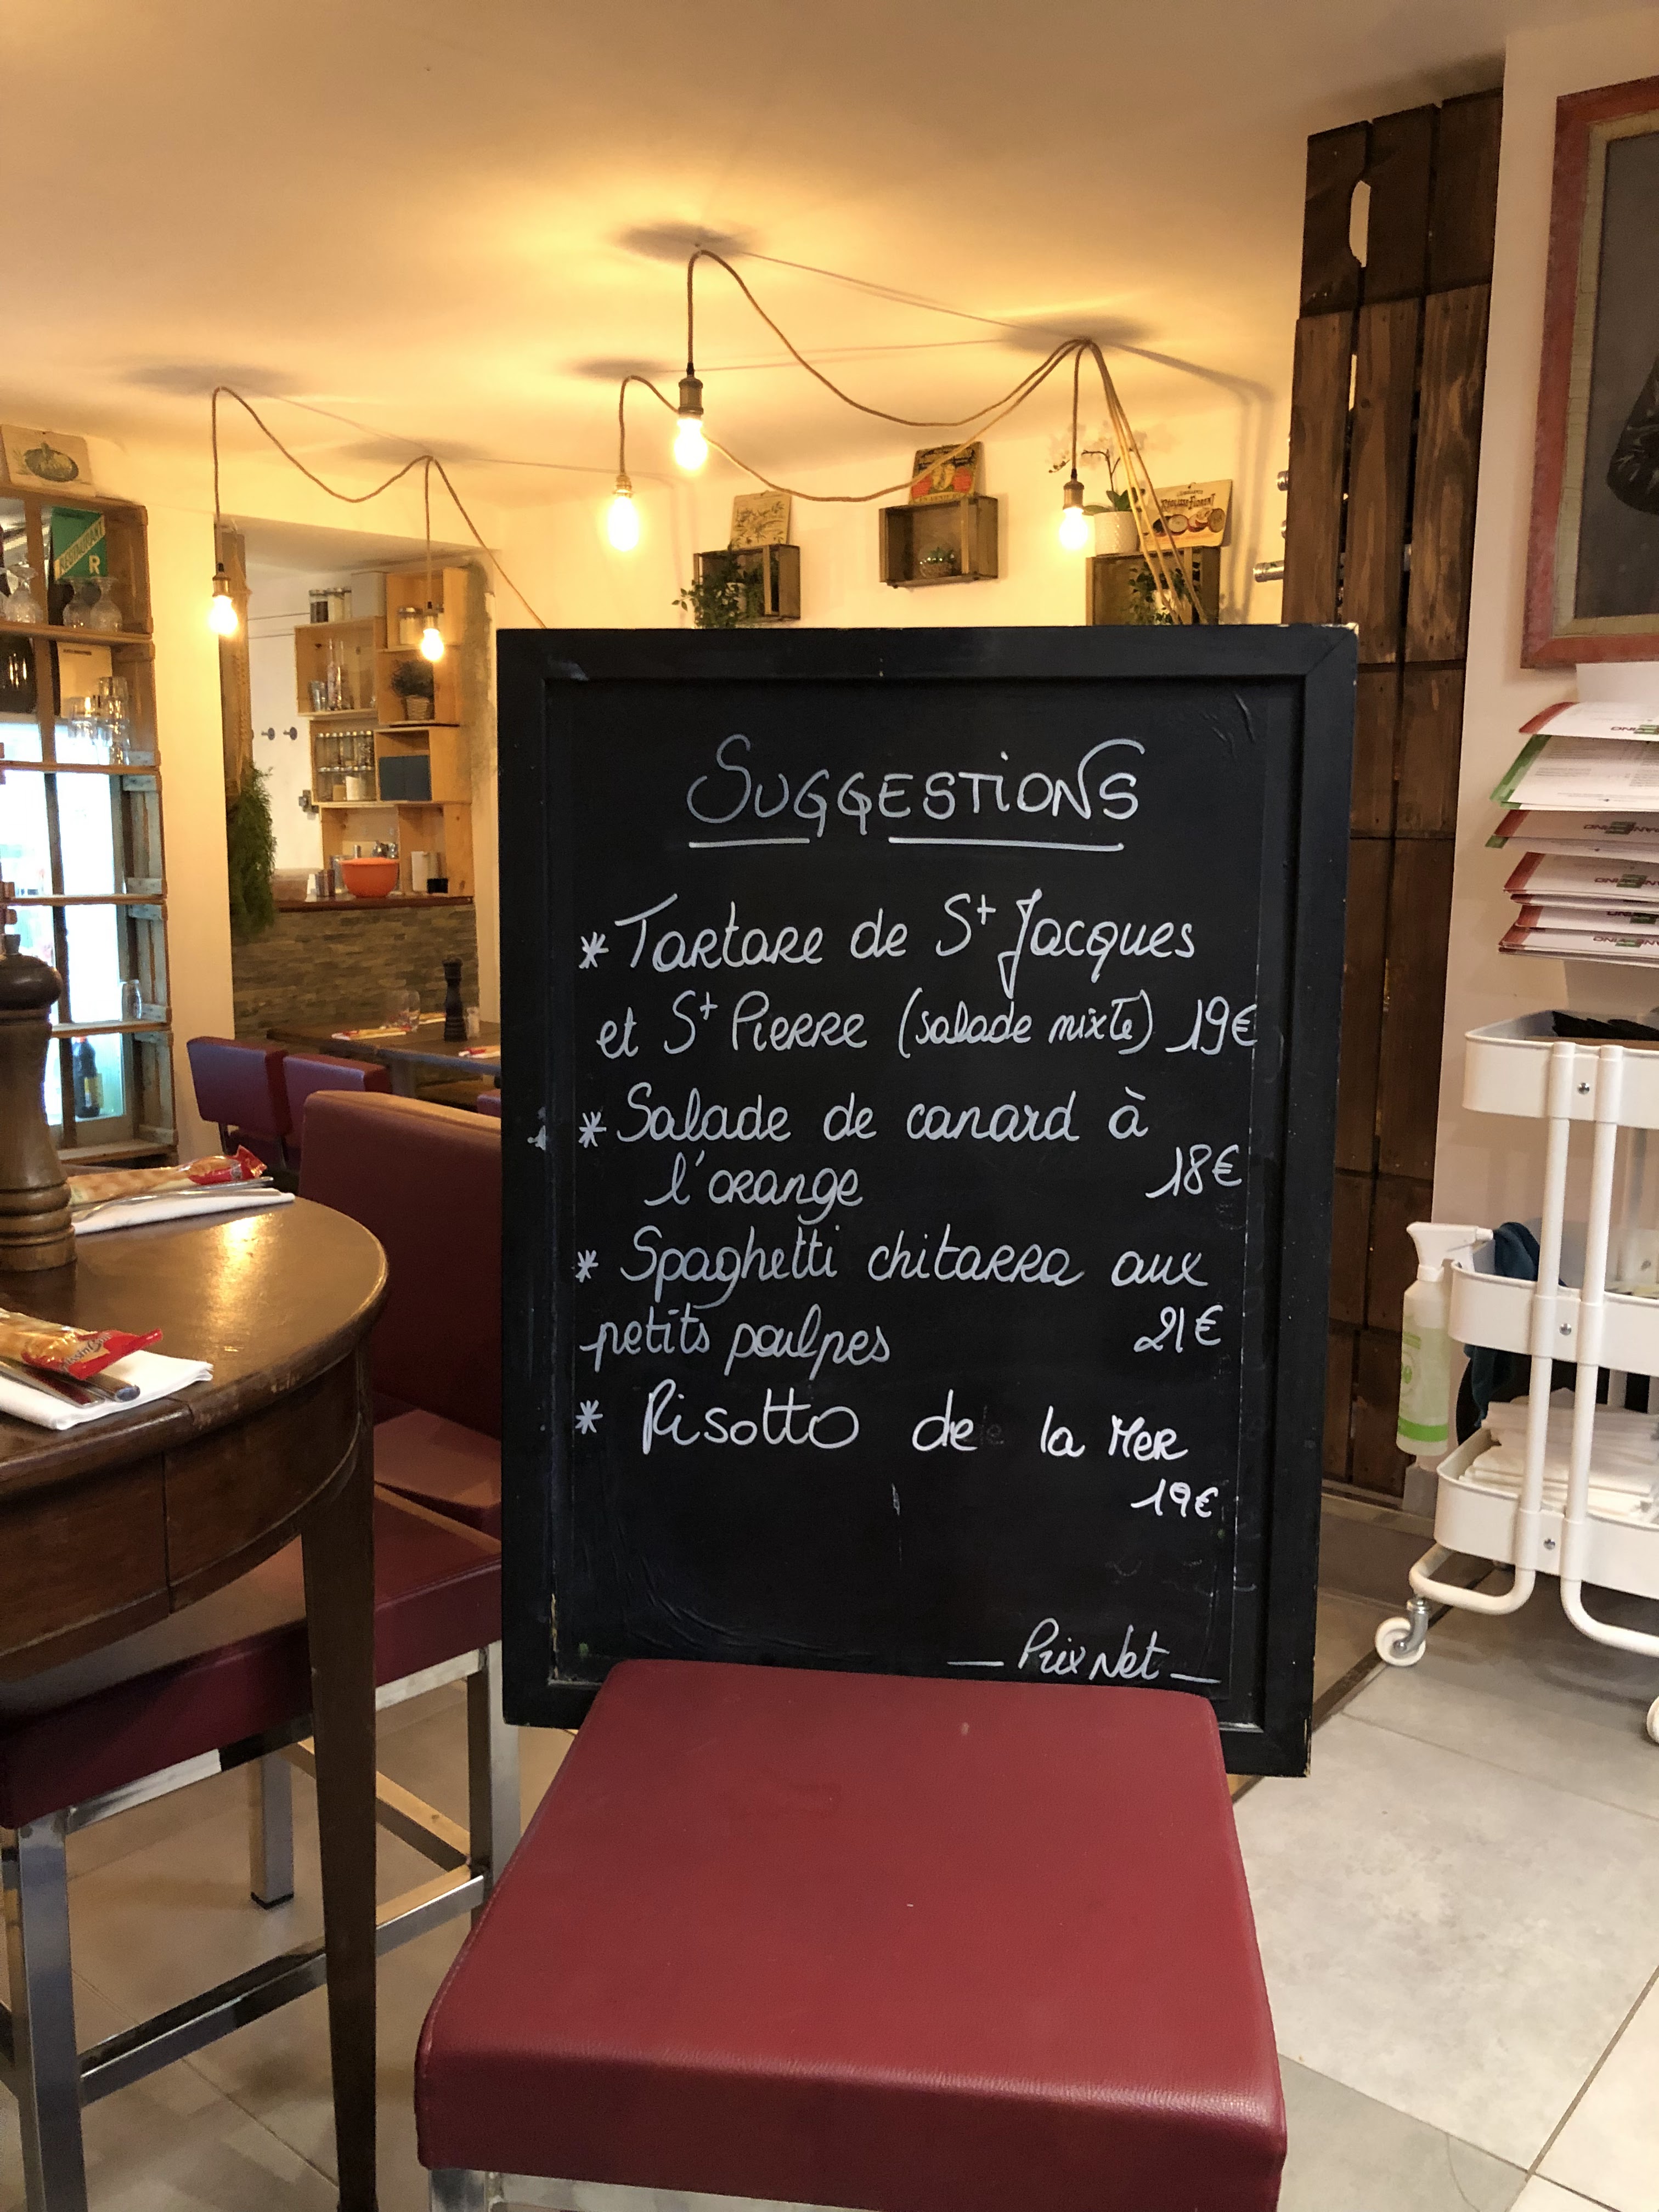 SUGGESTIONS
* Tartare de St Jacques
et St Pierre (salade mixte) 19€
* Salade de canard à
l'orange 18€
* Spaghetti chitarra aux
petits poulpes 21€
* Risotto de la Mer
19€
— Prix Net —
RESTAURANT
R